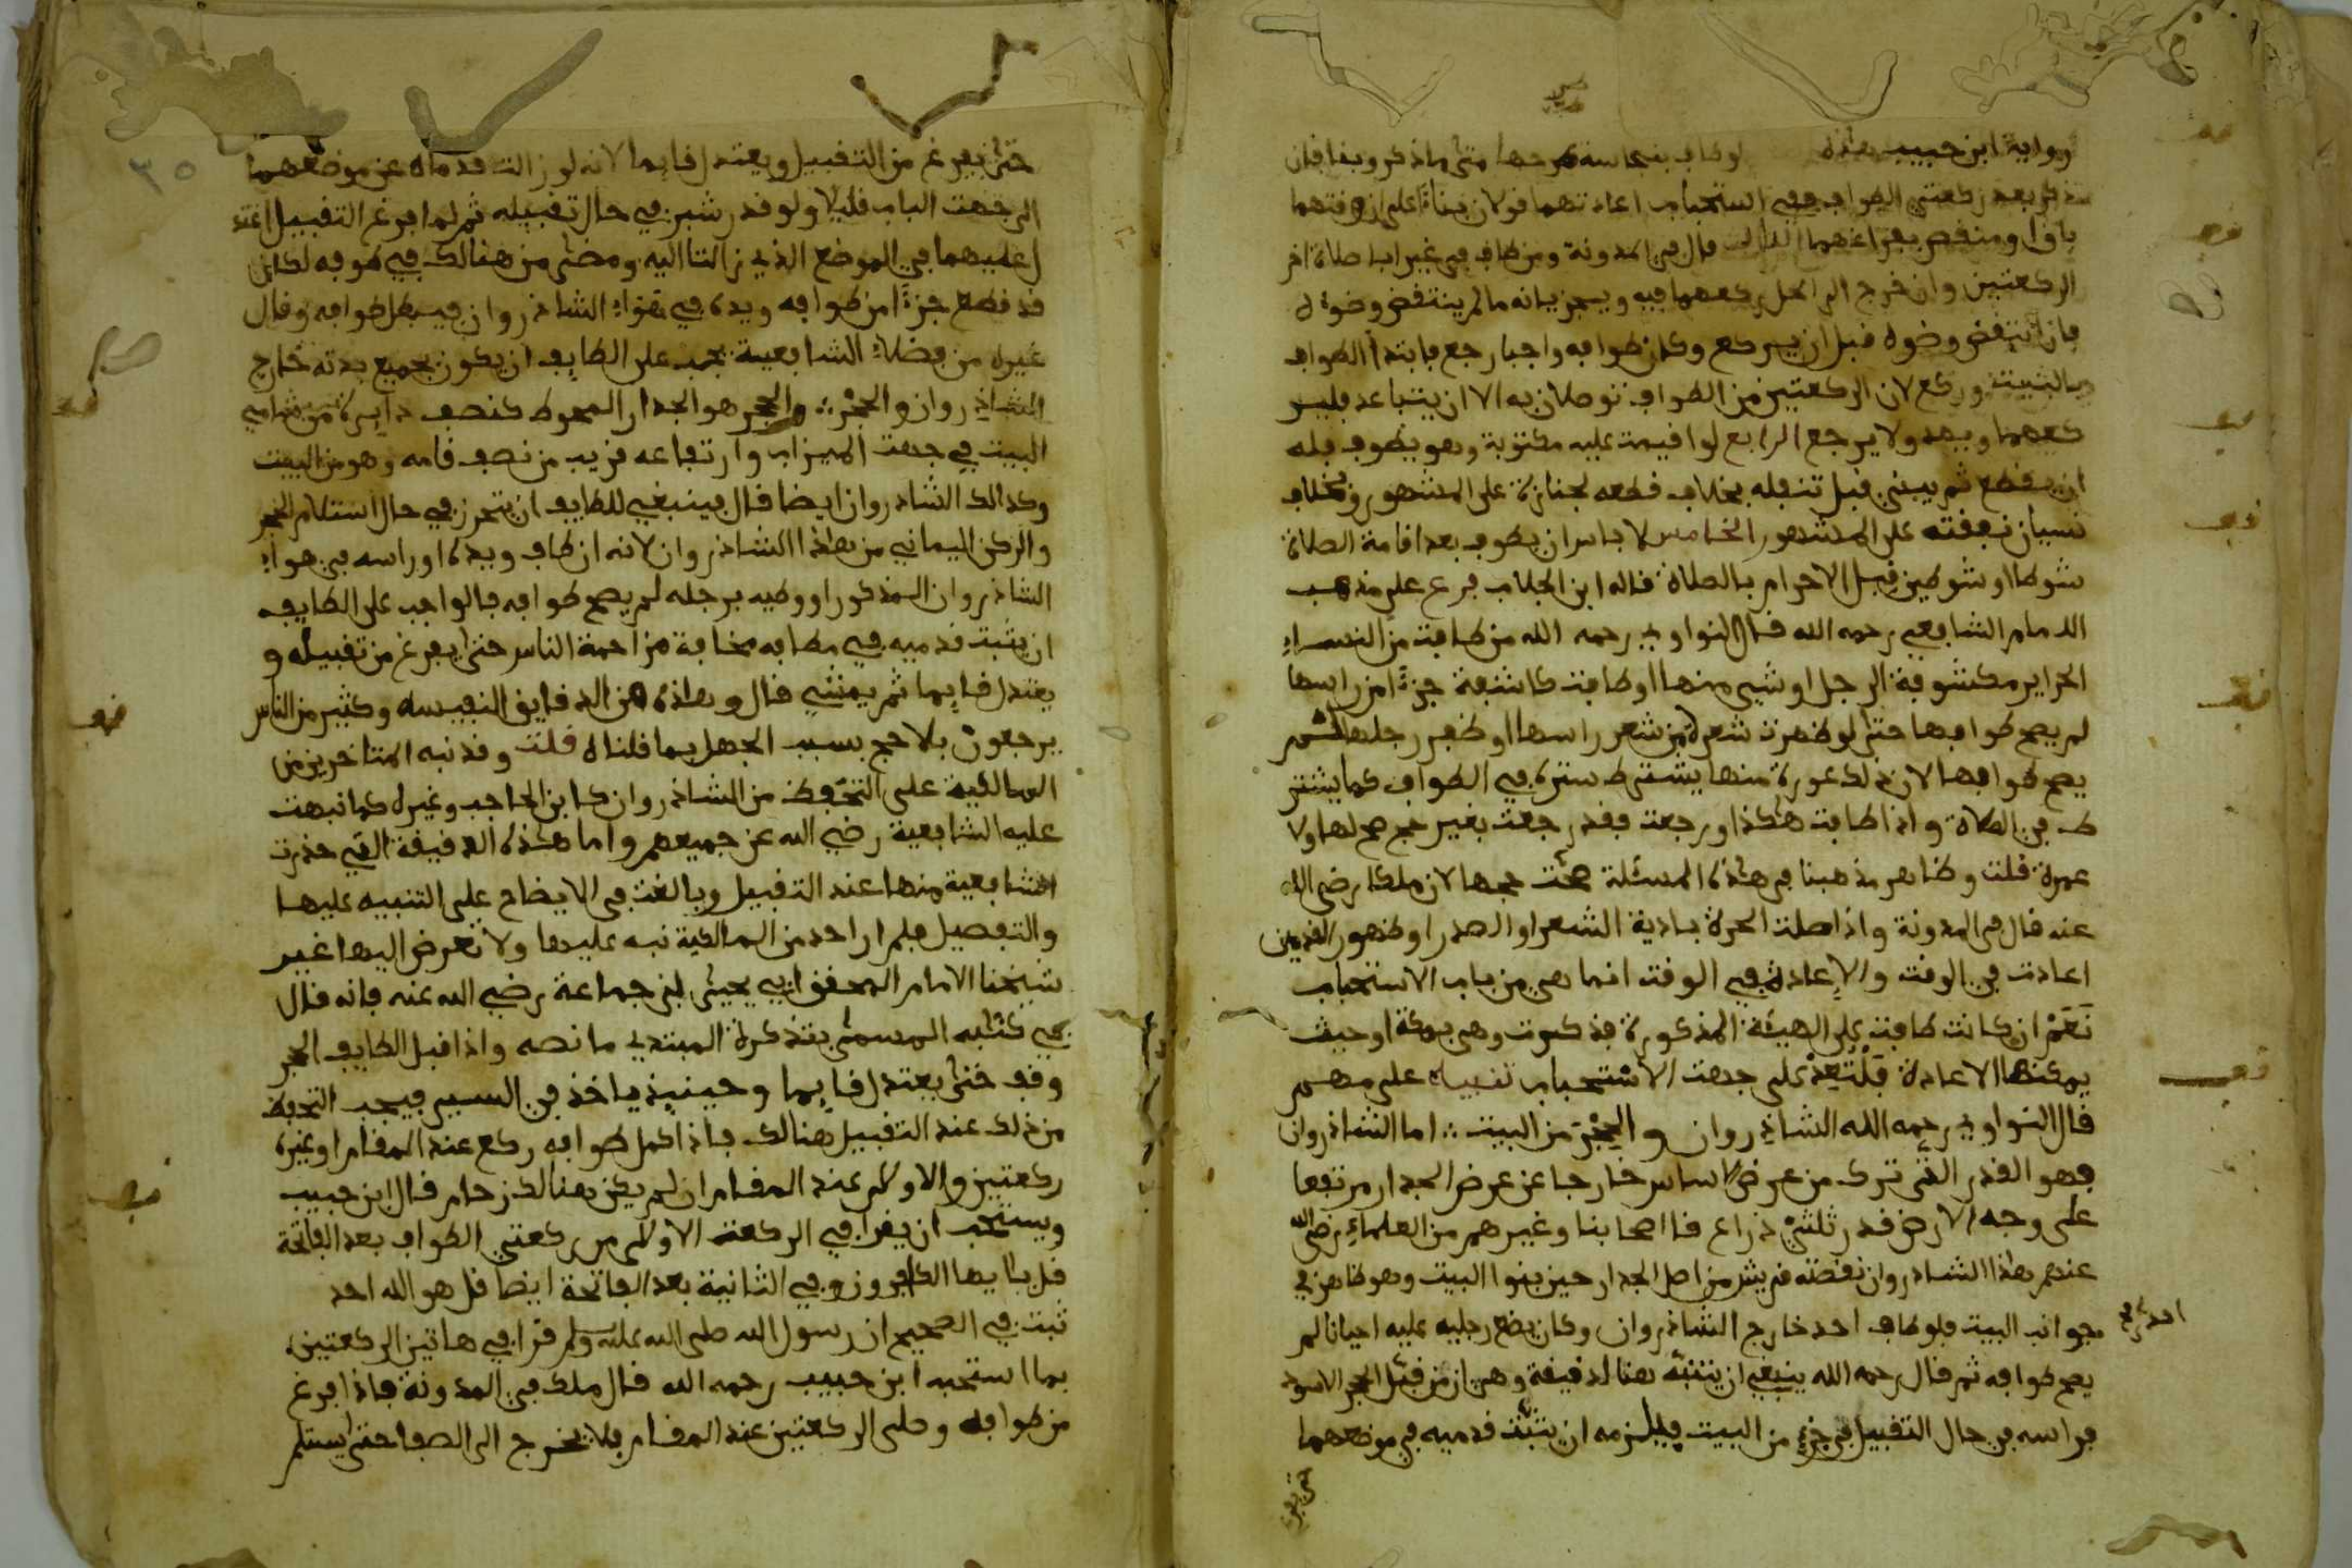 ورواية ابن حبيب هذه لو طاف بنجاسة طرحها متى ما ذكر وبنا فإن
تذكر بعد ركعتي الطواف ففي استحباب اعادتهما قولان بناءً على أن وقتهما
باق او منقض بفراغهما الثالث قال في المدونة ومن طاف في غير ابان صلاة اخر
الركعتين وان خرج الى الحل ركعهما فيه ويجزيانه ما لم ينتقض وضوءه
فان انتقض وضوه قبل ان يركع وكان طوافه واجبا رجع فابتدأ الطواف
بالبيت وركع لان الركعتين من الطواف توصلان به الا ان يتباعد فليـر
كعهما ويهد ولا يرجع الرابع لو اقيمت عليه مكتوبة وهو يطوف فله
ان يقطع ثم يبني قبل تنفله بخلاف قطعه لجنازة على المشهور وبخلاف
نسيان نفقته على المشهور الخامس لا باس ان يطوف بعد اقامة الصلاة
شوطا او شوطين قبل الاحرام بالصلاة قاله ابن الجلاب فرع على مذهب
الامام الشافعي رحمه الله قال النواوي رحمه الله من طافت من النساء
الحراير مكشوفة الرجل او شيء منها او طافت كاشفة جزءًا من راسها
لم يصح طوافها حتى لو ظهرت شعرة من شعر راسها او ظفر رجلها لم
يصح طوافها لان ذلك عورة منها يشترط سترة في الطواف كما يشتر
ط في الصلاة واذا طافت هكذا ورجعت فقد رجعت بغير حج صح لها ولا
عمرة قلت وظاهر مذهبنا في هذه المسئلة صحت حجها لان ملكا رضي الله
عنه قال في المدونة واذا صلت الحرة بادية الشعر او الصدر او ظهور القدمين
اعادت في الوقت والإعادة في الوقت انما هي من باب الاستحباب
نَعَمْ ان كانت طافت على الهيئة المذكورة فذكرت وهي بمكة او حيث
يمكنها الاعادة فَلْتُعِدْ على جهت الاستحباب تنبيه على مهم
قال النواوي رحمه الله الشاذروان والحِجْر من البيت ∴ اما الشاذروان
فهو القدر الذي ترك من عرض الاساس خارجا عن عرض الجدار مرتفعا
على وجه الارض قدر ثلثي ذراع قا اصحابنا وغيرهم من العلماء رضي الله
عنهم هذا الشاذروان نقصته قريش من اصل الجدار حين بنوا البيت وهو ظاهر في
جوانب البيت فلو طاف احد خارج الشاذروان وكان يضع رجليه عليه احيانا لم
يصح طوافه ثم قال رحمه الله ينبغي ان يتنبه هنا لدقيقة وهي ان من قبل الحجر الاسود
فراسه في حال التقبيل في جزء من البيت فيلزمه ان يثبت قدميه في موضعهما
حتى يفرغ
حتى يفرغ من التقبيل ويعتدل قايما لانه لو زالت قدماه عن موضعهما
الى جهت الباب قليلا ولو قدر شبر في حال تقبيله ثم لما فرغ التقبيل اعتد
ل عليهما في الموضع الذي زالتا اليه ومضى من هنالك في طوفه لكان
قد قطع جزءًا من طوافه ويده في هواء الشاذروان فيبطل طوافه وقال
غيره من فضلاء الشافعية يجب على الطايف ان يكون بجميع بدنه خارج
الشاذروان والحجْر ∴ والحجر هو الجدار المحوط كنصف دايرة من شامي
البيت في جهت الميزاب وارتفاعه قريب من نصف قامه وهو من البيت
وكذالك الشاذروان ايضا قال فينبغي للطايف ان يتحرز في حال استلام الحجر
والركن اليماني من هذا الشاذروان لانه ان طاف ويده او راسه في هواء
الشاذروان المذكور او وطيه برجله لم يصح طوافه فالواجب على الطايف
ان يثبت قدميه في مطافه مخافة مزاحمة الناس حتى يفرغ من تقبيله و
يعتدل قايما ثم يمشي قال وهاذه من الدقايق النفيسه وكثير من الناس
يرجعون بلا حج بسبب الجهل بما قلناه قلت وقد نبه المتاخرين من
المالكية على التحفظ من الشاذروان كابن الحاجب وغيره كما نبهت
عليه الشافعية رضي الله عن جميعهم واما هذه الدقيقة التي حذرت
الشافعية منها عند التقبيل وبالغت في الايضاح على التنبيه عليها
والتفصيل فلم ار احد من المالكية نبه عليها ولا تعرض اليها غير
شيخنا الامام المحقق ابي يحيى ابن جماعة رضي الله عنه فانه قال
في كتبه المسمى بتذكرة المبتدي ما نصه واذا قبل الطايف الحجر
وقف حتى يعتدل قايما وحينيذ ياخذ في السير فيجب التحفظ
من ذلك عند التقبيل هنالك فاذا كمل طوافه ركع عند المقام او غيره
ركعتين والاولى عند المقام ان لم يكن هنالك زحام قال ابن حبيب
ويستحب ان يقرا في الركعت الاولى من ركعتي الطواف بعد الفاتحة
قل يا ايها الكافرون وفي الثانية بعد الفاتحة ايضا قل هو الله احد
ثبت في الصحيح ان رسول الله صلى الله عليه وسلم قرا في هاتين الركعتين
بما استحبه ابن حبيب رحمه الله قال ملك في المدونة فاذا فرغ
من طوافه وصلى الركعتين عند المقام فلا يخرج الى الصفا حتى يستلم
٣٥